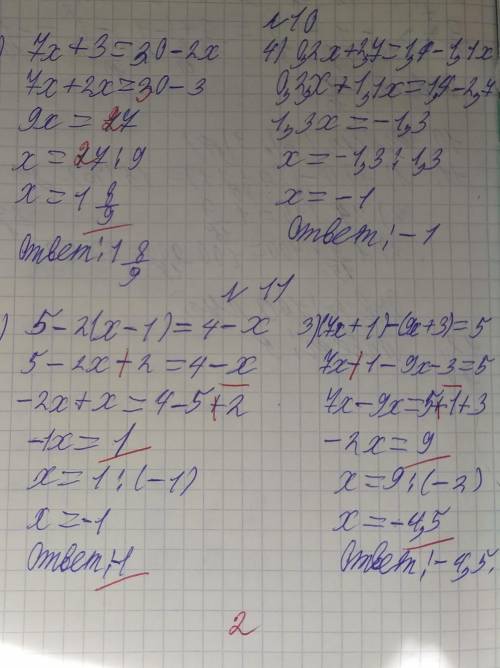 №10
) 7x+3=30-2x
7x+2x=30-3
9x=27
x=27:9
x=1 8/9
Ответ: 1 8/9
4) 0,2x+2,7=1,4-1,1x
0,2x+1,1x=1,4-2,7
1,3x=-1,3
x=-1,3:1,3
x=-1
Ответ: -1
№11
) 5-2(x-1)=4-x
5-2x+2=4-x
-2x+x=4-5+2
-1x=1
x=1:(-1)
x=-1
Ответ:-1
3)(7x+1)-(9x+3)=5
7x+1-9x-3=5
7x-9x=5+1+3
-2x=9
x=9:(-2)
x=-4,5
Ответ: -4,5.
2